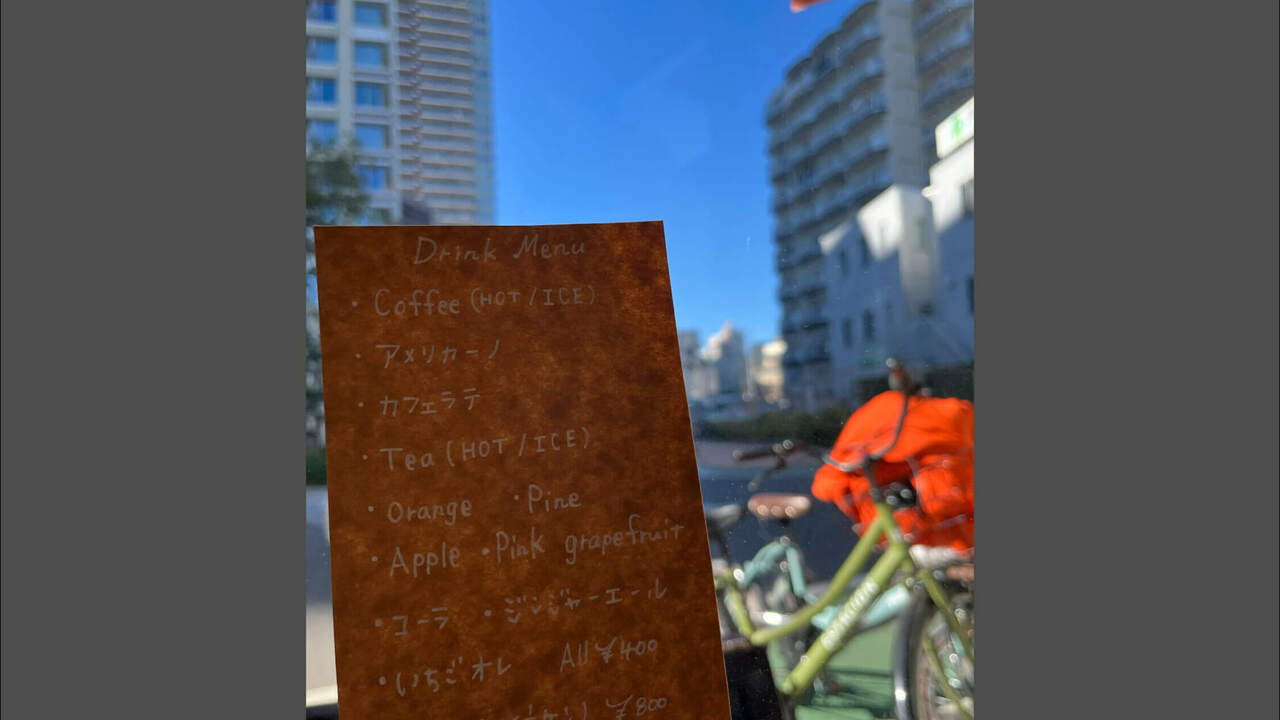 Drink Menu
・Coffee (HOT / ICE)
・アメリカーノ
・カフェラテ
・Tea (HOT / ICE)
・Orange ・Pine
・Apple ・Pink grapefruit
・コーラ ・ジンジャーエール
・いちごオレ All ¥400
¥800